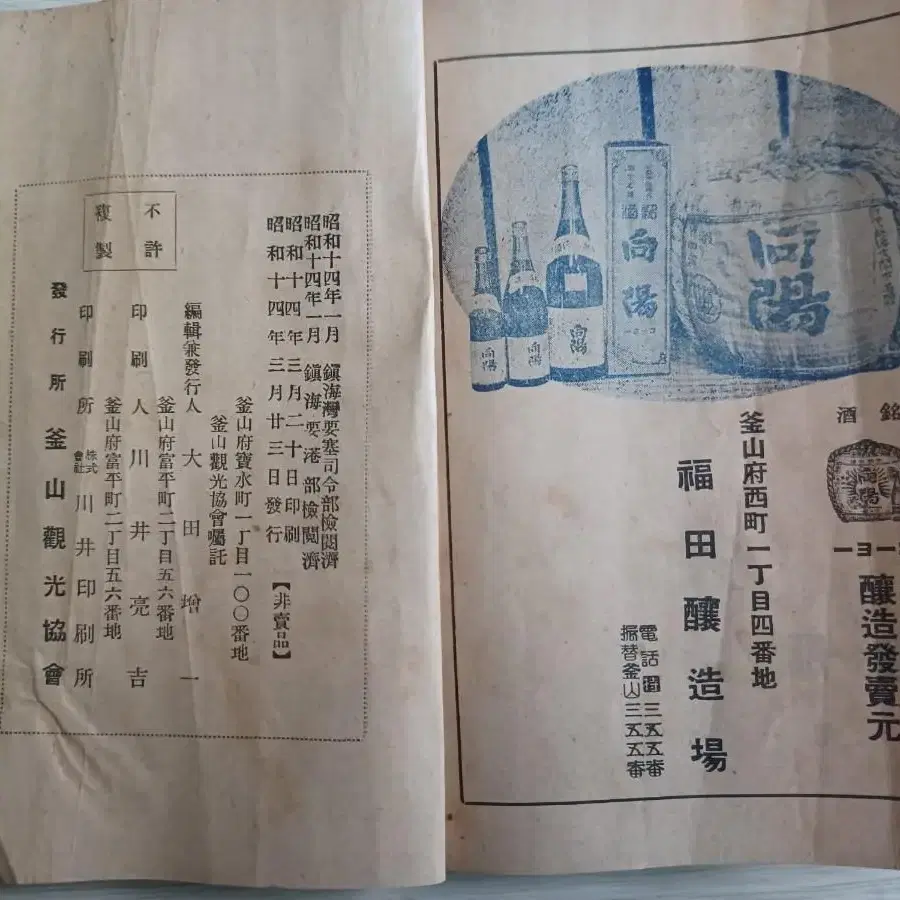 昭和十四年一月 鎭海灣要塞司令部檢閲濟
昭和十四年一月 鎭海要港部檢閲濟
昭和十四年三月二十日印刷
昭和十四年三月廿三日發行
【非賣品】
釜山府寶水町一丁目一〇〇番地
釜山觀光協會囑託
編輯兼發行人 大田增一
釜山府富平町二丁目五六番地
印刷人 川井亮吉
釜山府富平町二丁目五六番地
印刷所 株式會社 川井印刷所
發行所 釜山觀光協會
不許
複製
向陽
向陽
コーヨー
向陽
向陽
向陽
銘酒
向陽
コーヨー
釀造發賣元
釜山府西町一丁目四番地
福田釀造場
電話 三五五番
振替釜山三五五番